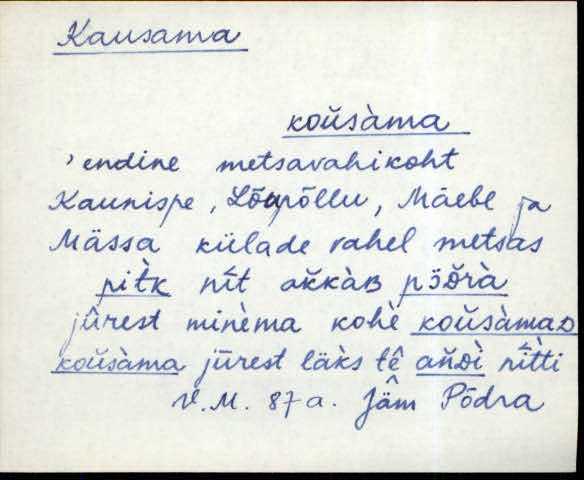 Kausama
koŭsàma
’endine metsavahikoht
Kaunispe, Lõupõllu, Mäebe ja
Mässa külade vahel metsas
pìtk nīt ak̆kàʙ pöᴅ̆rà
jûrest minèma kohè koŭsàmaᴅ
koŭsàma jūrest läks tê ańᴅì nī̀tti
V.M. 87 a. Jäm Põdra